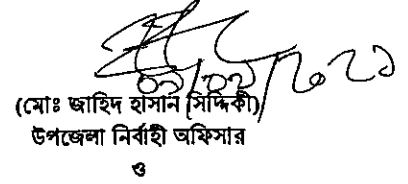 (মোঃ জাহিদ হাসান সিদ্দিকী)
উপজেলা নির্বাহী অফিসার
ও